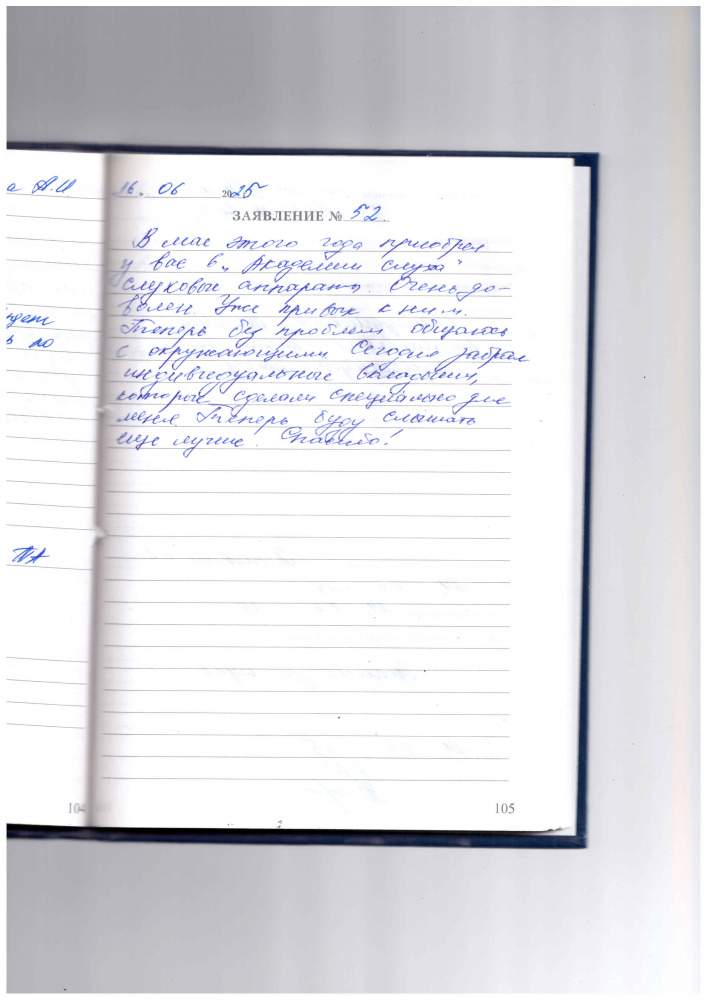 а А.И
дент
ь по
ПА
104
16. 06 2025
ЗАЯВЛЕНИЕ № 52
В мае этого года приобрел
у вас в „Академии слуха"
слуховые аппараты. Очень до-
волен Уже привык к ним.
Теперь без проблем общаюсь
с окружающими Сегодня забрал
индивидуальные вкладыши,
которые сделали специально для
меня Теперь буду слышать
еще лучше. Спасибо!
105